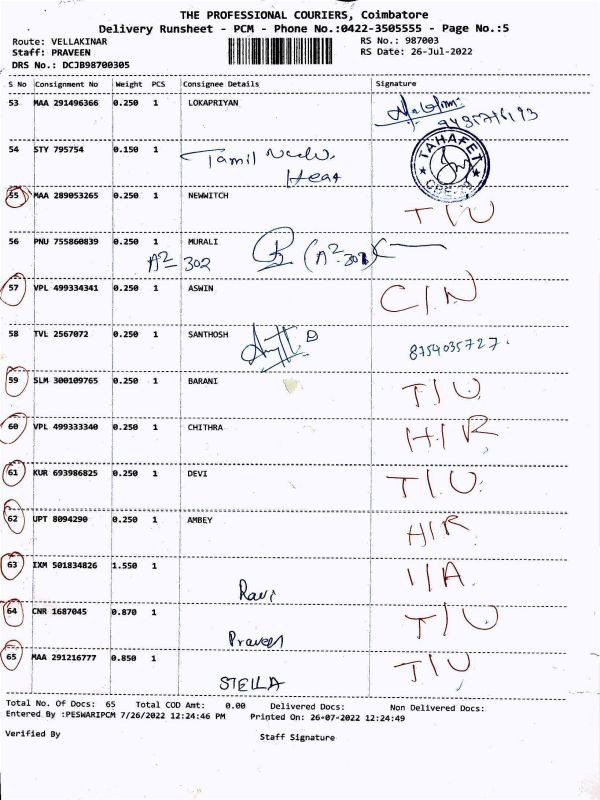 THE PROFESSIONAL COURIERS, Coimbatore
Delivery Runsheet - PCM - Phone No.:0422-3505555 - Page No.:5
Route: VELLAKINAR RS No.: 987003
Staff: PRAVEEN RS Date: 26-Jul-2022
DRS No.: DCJB98700305
S No Consignment No Weight PCS Consignee Details Signature
53 MAA 291496366 0.250 1 LOKAPRIYAN
54 STY 795754 0.150 1
Tamil
TAHAFET
55 MAA 289053265 0.250 1 NEWWITCH
T/U
56 PNU 755860839 0.250 1 MURALI
A2-302
57 VPL 499334341 0.250 1 ASWIN
C/N
58 TVL 2567072 0.250 1 SANTHOSH
8754035727.
59 SLM 300109765 0.250 1 BARANI
T/U
60 VPL 499333340 0.250 1 CHITHRA
H/R
61 KUR 693986825 0.250 1 DEVI
T/U
62 UPT 8094290 0.250 1 AMBEY
H/R
63 IXM 501834826 1.550 1
I/A
Ravi
64 CNR 1687045 0.870 1
T/U
Praveen
65 MAA 291216777 0.850 1
T/U
STELLA
Total No. Of Docs: 65 Total COD Amt: 0.00 Delivered Docs: Non Delivered Docs:
Entered By :PESWARIPCM 7/26/2022 12:24:46 PM Printed On: 26-07-2022 12:24:49
Verified By Staff Signature